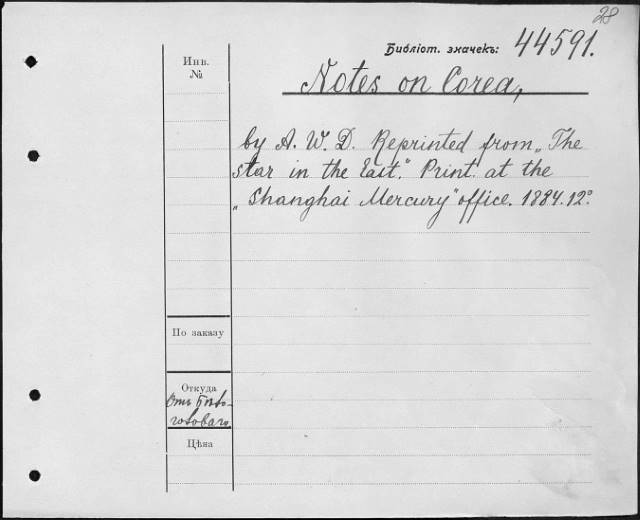 28
Библіот. значекъ: 44591.
Инв.
№
Notes on Corea,
by A. W. D. Reprinted from „The
star in the East.” Print. at the
„Shanghai Mercury” office. 1884. 12°.
По заказу
Откуда
Отъ
Цѣна